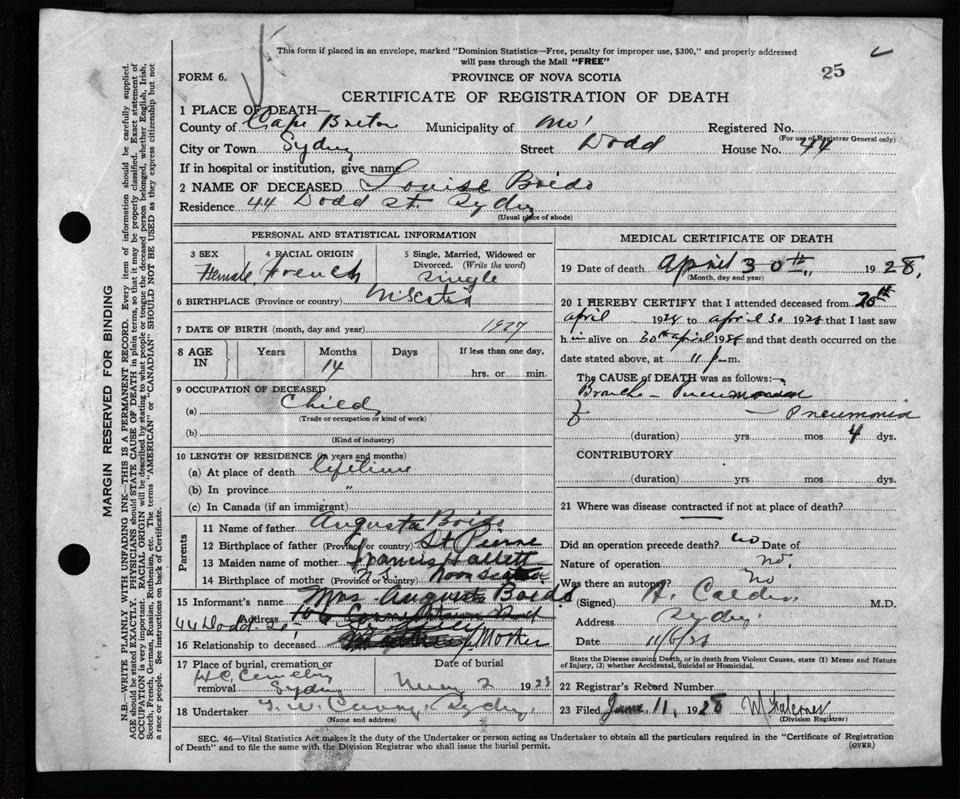 This form if placed in an envelope, marked "Dominion Statistics—Free, penalty for improper use, $300," and properly addressed
will pass through the Mail "FREE"
25
FORM 6.
PROVINCE OF NOVA SCOTIA
CERTIFICATE OF REGISTRATION OF DEATH
1 PLACE OF DEATH—
County of Cape Breton Municipality of Registered No.
(For use of Registrar General only)
City or Town Sydney Street Dodd House No. 44
If in hospital or institution, give name
2 NAME OF DECEASED Louise Boido
Residence 44 Dodd St. Sydney
(Usual place of abode)
PERSONAL AND STATISTICAL INFORMATION
3 SEX 4 RACIAL ORIGIN 5 Single, Married, Widowed or
Divorced. (Write the word)
Female French Single
6 BIRTHPLACE (Province or country) N. Scotia
7 DATE OF BIRTH (month, day and year) 1927
8 AGE IN Years Months Days If less than one day,
14 hrs. or min.
9 OCCUPATION OF DECEASED
(a) Child
(Trade or occupation or kind of work)
(b)
(Kind of industry)
10 LENGTH OF RESIDENCE (in years and months)
(a) At place of death lifetime
(b) In province "
(c) In Canada (if an immigrant)
Parents
11 Name of father Augusta Boido
12 Birthplace of father (Province or country) St Pierre
13 Maiden name of mother Francis Hallett
14 Birthplace of mother (Province or country) Nova Scotia
15 Informant's name Mrs Augusta Boido
Address
44 Dodd St
16 Relationship to deceased Mother
17 Place of burial, cremation or Date of burial
removal H.C. Cemetery Sydney May 2 1928
18 Undertaker Sydney.
(Name and address)
MEDICAL CERTIFICATE OF DEATH
19 Date of death April 30th, 1928,
(Month, day and year)
20 I HEREBY CERTIFY that I attended deceased from 20th
April 1928 to April 30 1928 that I last saw
h alive on 30th April 1928 and that death occurred on the
date stated above, at 11 p m.
The CAUSE of DEATH was as follows:—
Broncho - Pneumonia
— Pneumonia
(duration) yrs mos 4 dys.
CONTRIBUTORY
(duration) yrs. mos. dys.
21 Where was disease contracted if not at place of death?
Did an operation precede death? no Date of
Nature of operation no.
Was there an autopsy? no
(Signed) H. Calder M.D.
Address Sydney
Date
State the Disease causing Death, or in death from Violent Causes, state (1) Means and Nature
of Injury, (2) whether Accidental, Suicidal or Homicidal.
22 Registrar's Record Number
23 Filed June 11, 1928
(Division Registrar)
SEC. 46—Vital Statistics Act makes it the duty of the Undertaker or person acting as Undertaker to obtain all the particulars required in the "Certificate of Registration
of Death" and to file the same with the Division Registrar who shall issue the burial permit.
(OVER)
MARGIN RESERVED FOR BINDING
N.B.—WRITE PLAINLY WITH UNFADING INK—THIS IS A PERMANENT RECORD. Every item of information should be carefully supplied.
AGE should be stated EXACTLY. PHYSICIANS should STATE CAUSE OF DEATH in plain terms, so that it may be properly classified. Exact statement of
OCCUPATION is very important. RACIAL ORIGIN will be described by stating to what people or tongue the deceased person belonged, whether English, Irish,
Scotch, French, German, Russian, Ruthenian, etc. The terms "AMERICAN" or "CANADIAN" SHOULD NOT BE USED as they express citizenship but not
a race or people. See instructions on back of Certificate.